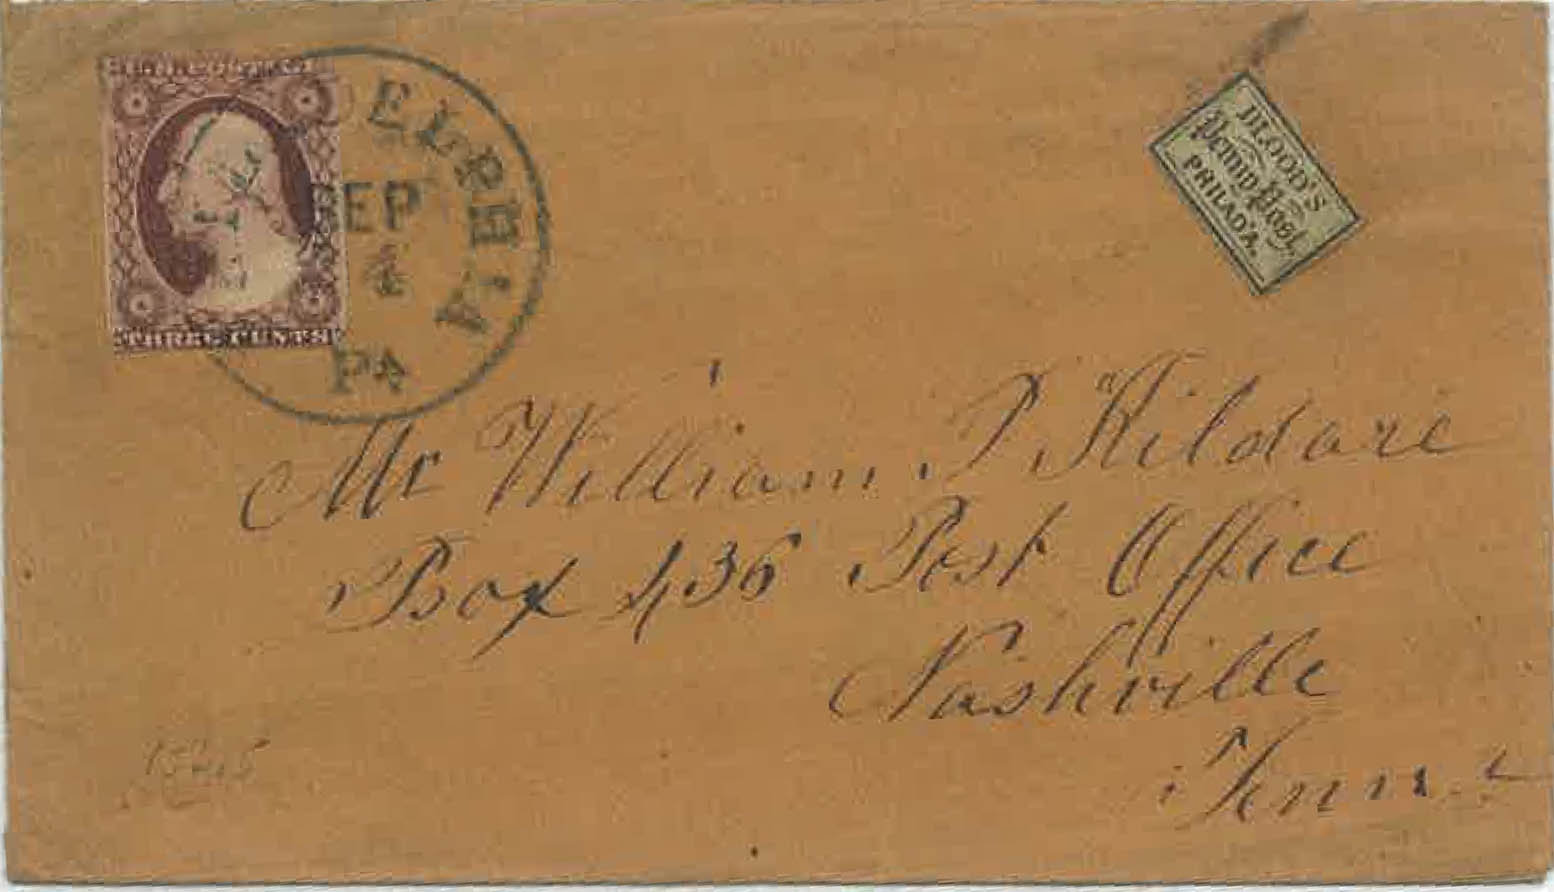 THREE CENTS
ELPHIA
SEP
4
PA
BLOOD'S
Penny Post,
PHILAD'A.
Mr William P Kildare
Box 436 Post Office
Nashville
Tenn